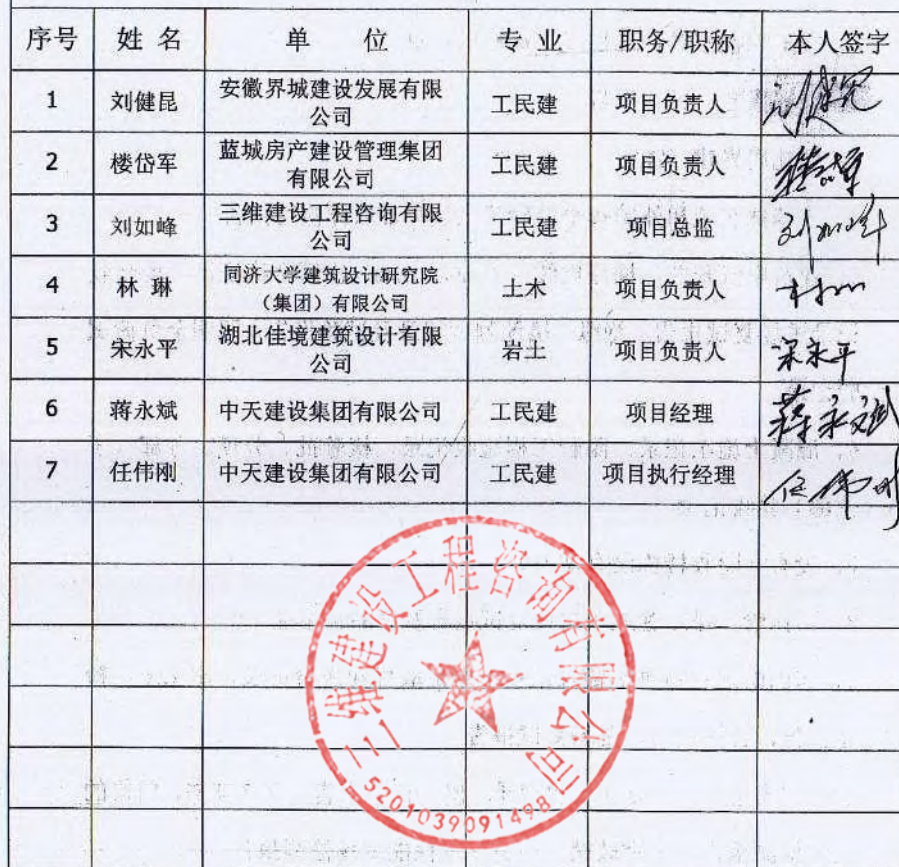 序号 姓 名 单 位 专 业 职务/职称 本人签字
1 刘健昆 安徽界城建设发展有限公司 工民建 项目负责人 刘健昆
2 楼岱军 蓝城房产建设管理集团有限公司 工民建 项目负责人 楼岱军
3 刘如峰 三维建设工程咨询有限公司 工民建 项目总监 刘如峰
4 林 琳 同济大学建筑设计研究院（集团）有限公司 土木 项目负责人 林琳
5 宋永平 湖北佳境建筑设计有限公司 岩土 项目负责人 宋永平
6 蒋永斌 中天建设集团有限公司 工民建 项目经理 蒋永斌
7 任伟刚 中天建设集团有限公司 工民建 项目执行经理 任伟刚
三维建设工程咨询有限公司
5201039091498